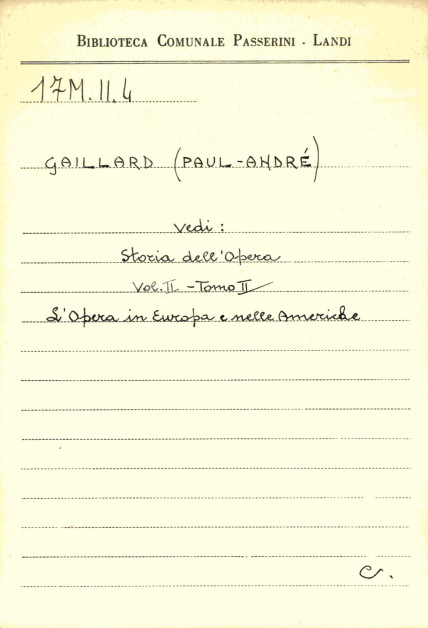 BIBLIOTECA COMUNALE PASSERINI - LANDI
17M.II.4
GAILLARD (PAUL-ANDRÉ)
Vedi:
Storia dell'Opera
Vol. II - Tomo II
L'Opera in Europa e nelle Americhe
C.